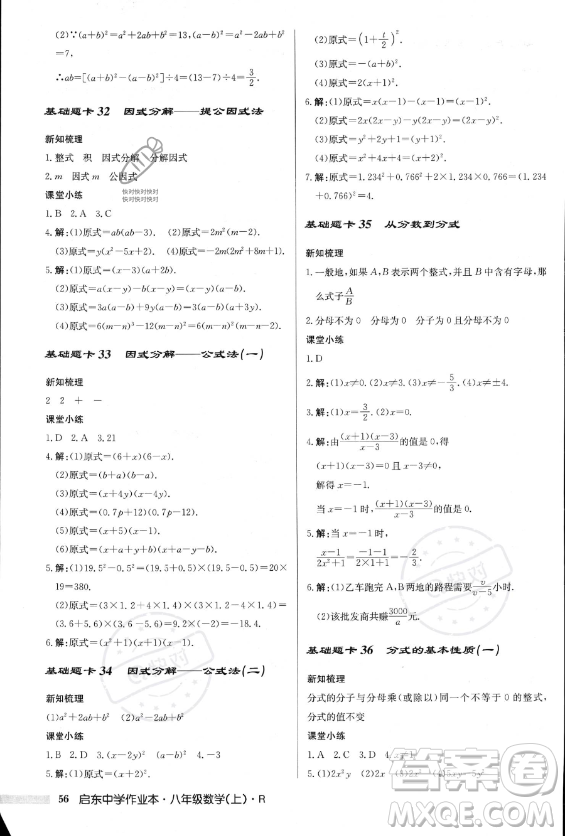 (2)(a+b)²=a²+2ab+b²=13,(a-b)²=a²-2ab+b²
=7.
∴ab=[(a+b)²-(a-b)²]÷4=(13-7)÷4=3/2.
基础题卡32 因式分解——提公因式法
新知梳理
1.整式 积 因式分解 分解因式
2.m 因式m 公因式
课堂小练
1.B 2.A 3.C
4.解:(1)原式=ab(ab-3). (2)原式=2m²(m-4).
(3)原式=2ab(a+2b-1). (4)原式=-2m(m²-8m+
5.解:(1)原式=(x-3)(a+2).
(2)原式=9y(x-y)²(x-y+1).
(3)原式=3a(a-b)+6b(a-b)=3(a-b)(a+2b).
(4)原式=6(m-n)³-12(m-n)²=6(m-n)²(m-n-2).
基础题卡33 因式分解——公式法(一)
新知梳理
2 2 + -
课堂小练
1.D 2.A 3.21
4.解:(1)原式=(6+x)(6-x).
(2)原式=(b+a)(b-a).
(3)原式=(x+4y)(x-4y).
(4)原式=(0.7p+12)(0.7p-12).
5.解:(1)19.5²-0.5²=(19.5+0.5)(19.5-0.5)=20×
19=380.
(2)原式=(3×1.2+4×0.6)(3×1.2-4×0.6)=
(3.6+5.6)(3.6-5.6)=6×1.2=7.2.
6.解:原式=(x²+1)(x²-1)=(x²+1)(x+1)(x-1).
基础题卡34 因式分解——公式法(二)
新知梳理
(1)a²+2ab+b² (2)a²-2ab+b²
课堂小练
1.B 2.D 3.(x-2)² 4.-3
5.解:(1)原式=(x-7)².
56 启东中学作业本·八年级数学(上)·R
(2)原式=(1+t/2)².
(3)原式=-(a+b)².
(4)原式=2(x+1)².
6.解:(1)原式=x(x²-2x+1)=x(x-1)².
(2)原式=(x-y)(a²-16)=(x-y)(a+4)(a-4).
7.解:原式=1.234²+0.766²+2×1.234×0.766=(1.234
+0.766)²=4.
基础题卡35 从分数到分式
新知梳理
1.一般地,如果A,B表示两个整式,并且B中含有字母,那
么式子A/B
2.分母不为0 分母为0 分子为0 分母不为0
课堂小练
1.D
2.解:(1)x≠0. (2)x≠3. (3)x≠-5/3. (4)x≠±4.
3.解:(1)x=3/2. (2)x=0. (3)x=2.
4.解:由(x+1)(x-3)/x-3的值是0,得
(x+1)(x-3)=0且x-3≠0,
解得x=-1.
当x=-1时,(x+1)(x-3)/x-3的值是0.
5.解:当x=-1时,
x-1/2x²+1=-1-1/2×(-1)²+1=-2/3.
6.解:(1)乙车跑完A,B两地的路程需要v/v-5小时.
(2)该批发商共赚3000/a元.
基础题卡36 分式的基本性质(一)
新知梳理
分式的分子与分母乘(或除以)同一个不等于0的整式,
分式的值不变
课堂小练
1.(1)2x²y (2)x (3)x²y (4)x-y
快对快对快对
快对快对快对